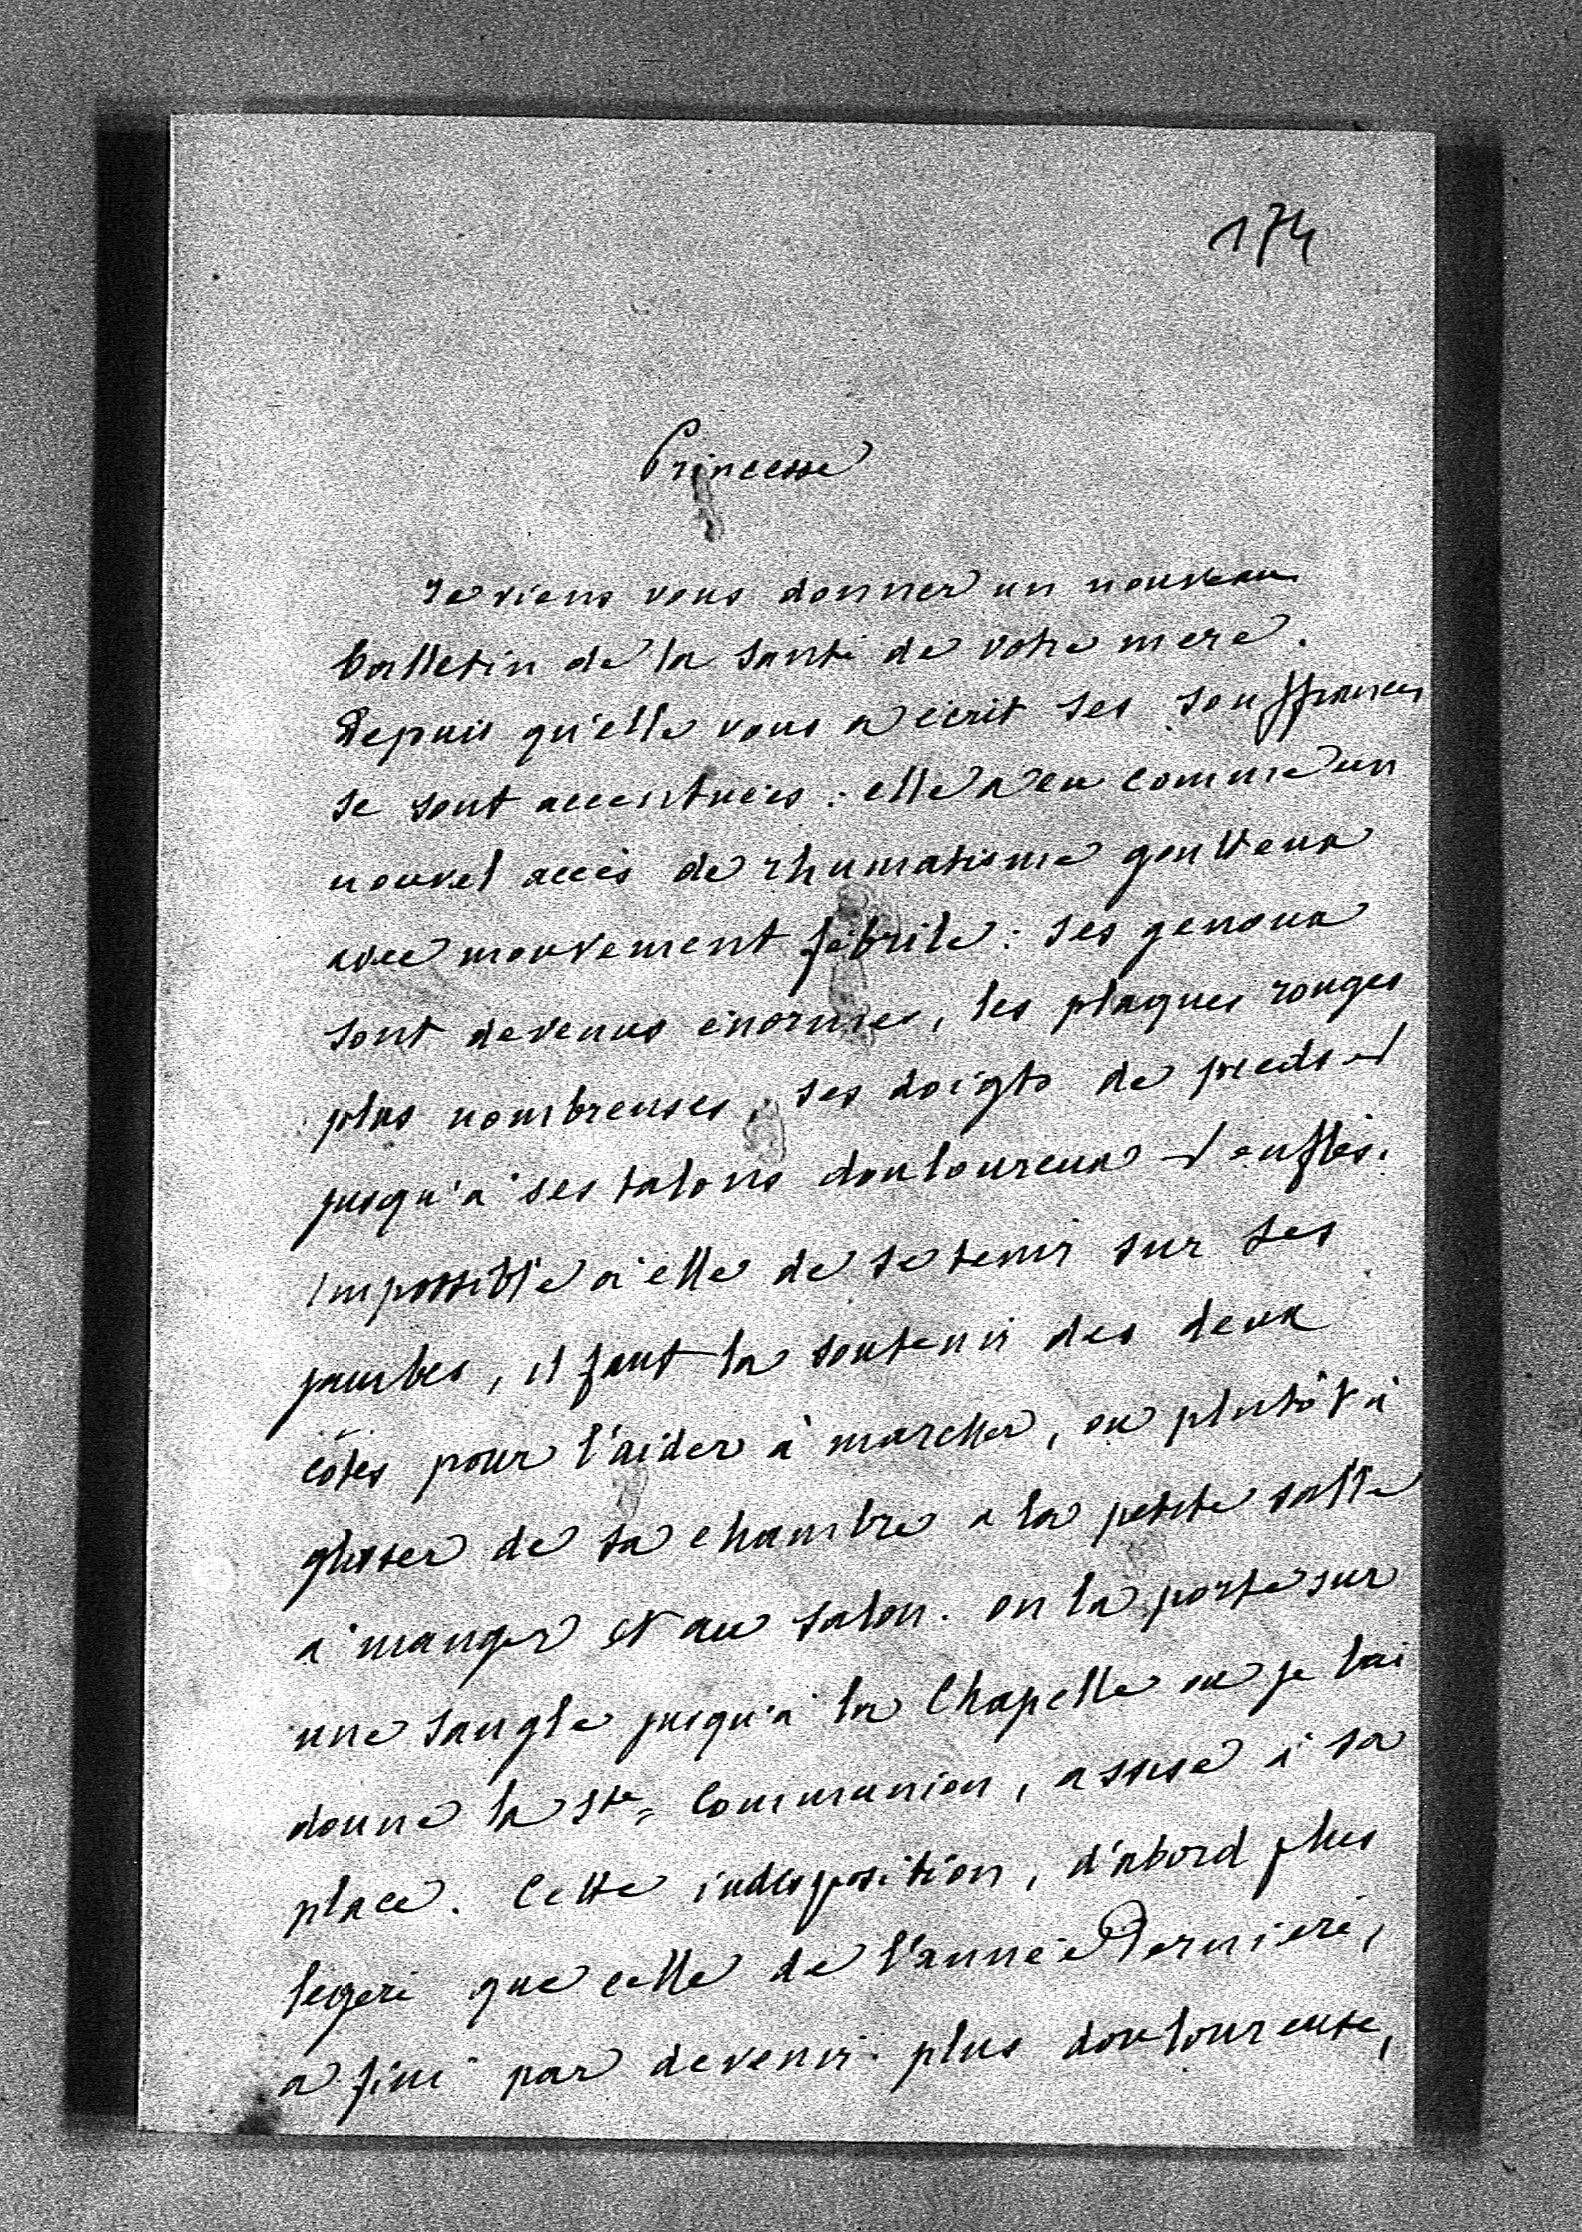 174
Princesse
Je viens vous donner un nouveau
bulletin de la santé de votre mere.
Depuis qu'elle vous a écrit ses souffrances
se sont accentuées : elle a eu comme un
nouvel accès de rhumatisme goutteux
avec mouvement fébrile : ses genoux
sont devenus énormes, les plaques rouges
plus nombreuses, ses doigts de pieds et
jusqu'à ses talons douloureux et enflés.
Impossible à elle de se tenir sur ses
jambes, il faut la soutenir des deux
côtés pour l'aider à marcher, ou plutôt à
glisser de sa chambre a la petite salle
à manger et au salon. on la porte sur
une sangle jusqu'à la Chapelle ou je lui
donne la Ste Communion, assise à sa
place. Cette indisposition, d'abord plus
légère que celle de l'année Dernière,
a fini par devenir plus douloureuse,